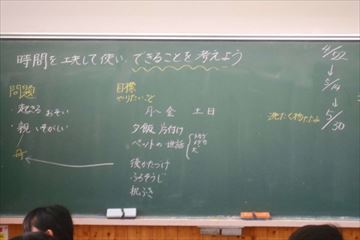 時間を工夫して使い、できることを考えよう
問題
起きる おそい
親 いそがしい
目標
やりたいこと
月〜金 土日
夕飯 片付け
ペットの世話
後かたづけ
ふろそうじ
机ふき
洗たく物たたみ
4/22
5/14
5/30